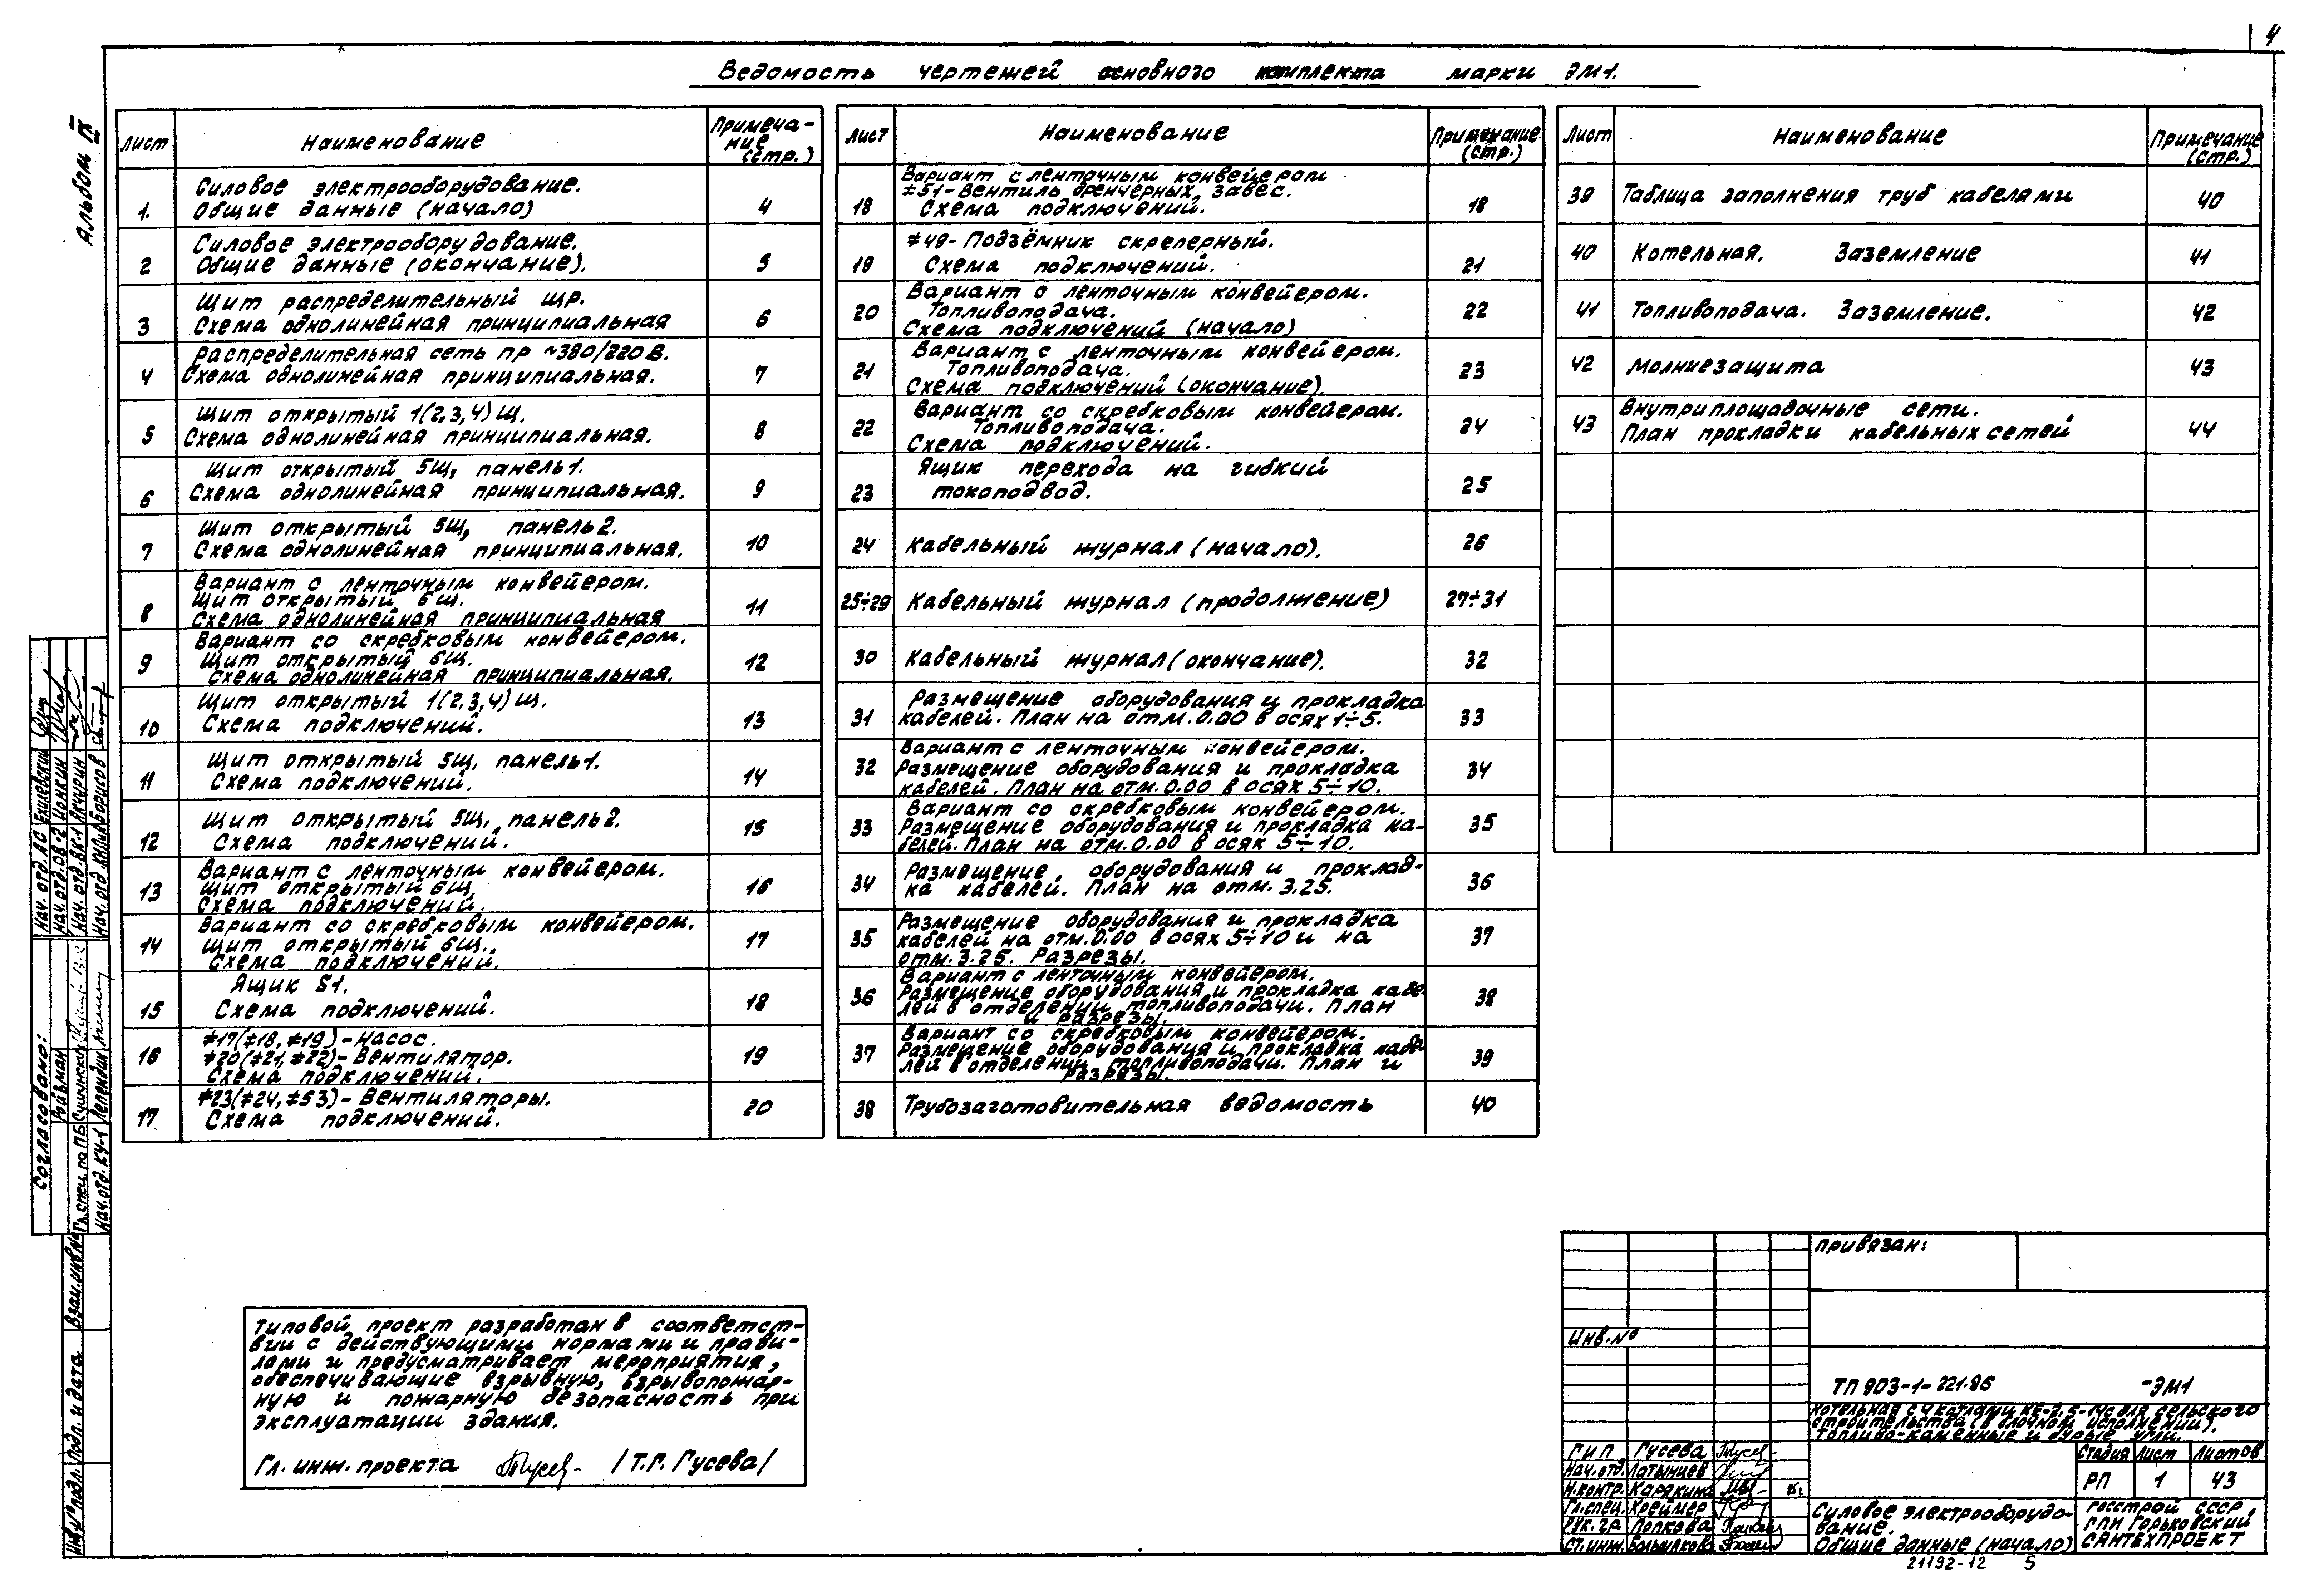 4
Альбом IX
Ведомость чертежей основного комплекта марки ЭМ1.
Лист
Наименование
Примеча-
ние
(стр.)
1.
Силовое электрооборудование.
Общие данные (начало)
4
2
Силовое электрооборудование.
Общие данные (окончание).
5
3
Щит распределительный ЩР.
Схема однолинейная принципиальная
6
4
Распределительная сеть ПР ~380/220В.
Схема однолинейная принципиальная.
7
5
Щит открытый 1(2,3,4)Щ.
Схема однолинейная принципиальная.
8
6
Щит открытый 5Щ, панель 1.
Схема однолинейная принципиальная.
9
7
Щит открытый 5Щ, панель 2.
Схема однолинейная принципиальная.
10
8
Вариант с ленточным конвейером.
Щит открытый 6Щ.
Схема однолинейная принципиальная
11
9
Вариант со скребковым конвейером.
Щит открытый 6Щ.
Схема однолинейная принципиальная.
12
10
Щит открытый 1(2,3,4)Щ.
Схема подключений.
13
11
Щит открытый 5Щ, панель 1.
Схема подключений.
14
12
Щит открытый 5Щ, панель 2.
Схема подключений.
15
13
Вариант с ленточным конвейером.
Щит открытый 6Щ.
Схема подключений.
16
14
Вариант со скребковым конвейером.
Щит открытый 6Щ.
Схема подключений.
17
15
Ящик 51.
Схема подключений.
18
16
≠17(≠18, ≠19) - Насос.
≠20(≠21, ≠22) - Вентилятор.
Схема подключений.
19
17
≠23(≠24, ≠53) - Вентиляторы.
Схема подключений.
20
Лист
Наименование
Примечание
(стр.)
18
Вариант с ленточным конвейером
≠51 - Вентиль дренчерных завес.
Схема подключений.
18
19
≠49 - Подъёмник скреперный.
Схема подключений.
21
20
Вариант с ленточным конвейером.
Топливоподача.
Схема подключений (начало)
22
21
Вариант с ленточным конвейером.
Топливоподача.
Схема подключений (окончание).
23
22
Вариант со скребковым конвейером.
Топливоподача.
Схема подключений.
24
23
Ящик перехода на гибкий
токоподвод.
25
24
Кабельный журнал (начало).
26
25÷29
Кабельный журнал (продолжение)
27÷31
30
Кабельный журнал (окончание).
32
31
Размещение оборудования и прокладка
кабелей. План на отм. 0.00 в осях 1÷5.
33
32
Вариант с ленточным конвейером.
Размещение оборудования и прокладка
кабелей. План на отм. 0.00 в осях 5÷10.
34
33
Вариант со скребковым конвейером.
Размещение оборудования и прокладка ка-
белей. План на отм. 0.00 в осях 5÷10.
35
34
Размещение оборудования и проклад-
ка кабелей. План на отм. 3.25.
36
35
Размещение оборудования и прокладка
кабелей на отм. 0.00 в осях 5÷10 и на
отм. 3.25. Разрезы.
37
36
Вариант с ленточным конвейером.
Размещение оборудования и прокладка кабе-
лей в отделении топливоподачи. План
и разрезы.
38
37
Вариант со скребковым конвейером.
Размещение оборудования и прокладка кабе-
лей в отделении топливоподачи. План и
разрезы.
39
38
Трубозаготовительная ведомость
40
Лист
Наименование
Примечание
(стр.)
39
Таблица заполнения труб кабелями
40
40
Котельная. Заземление
41
41
Топливоподача. Заземление.
42
42
Молниезащита
43
43
Внутриплощадочные сети.
План прокладки кабельных сетей
44
Согласовано:
Ройзман
Гл. спец. по ПБ Сушинских
Нач. отд. КУ-1 Лепендин
Нач. отд. АС
Нач. отд. ОВ-2 Ионкин
Нач. отд. ВК-1 Акчурин
Нач. отд. Борисов
Взам. инв. №
Подп. и дата
Инв. № подл.
Типовой проект разработан в соответст-
вии с действующими нормами и прави-
лами и предусматривает мероприятия,
обеспечивающие взрывную, взрывопожар-
ную и пожарную безопасность при
эксплуатации здания.
Гл. инж. проекта /Т.Г. Гусева/
Привязан:
Инв. №
ТП 903-1-221.86 -ЭМ1
Котельная с 4 котлами КЕ-2,5-14С для сельского
строительства (в блочном исполнении).
Топливо-каменные и бурые угли.
ГИП Гусева
Нач. отд. Латынцев
Н. контр. Карякина
Гл. спец. Креймер
Рук. гр. Попкова
Ст. инж.
Стадия Лист Листов
РП 1 43
Силовое электрооборудо-
вание.
Общие данные (начало)
Госстрой СССР
ГПИ Горьковский
САНТЕХПРОЕКТ
21192-12 5